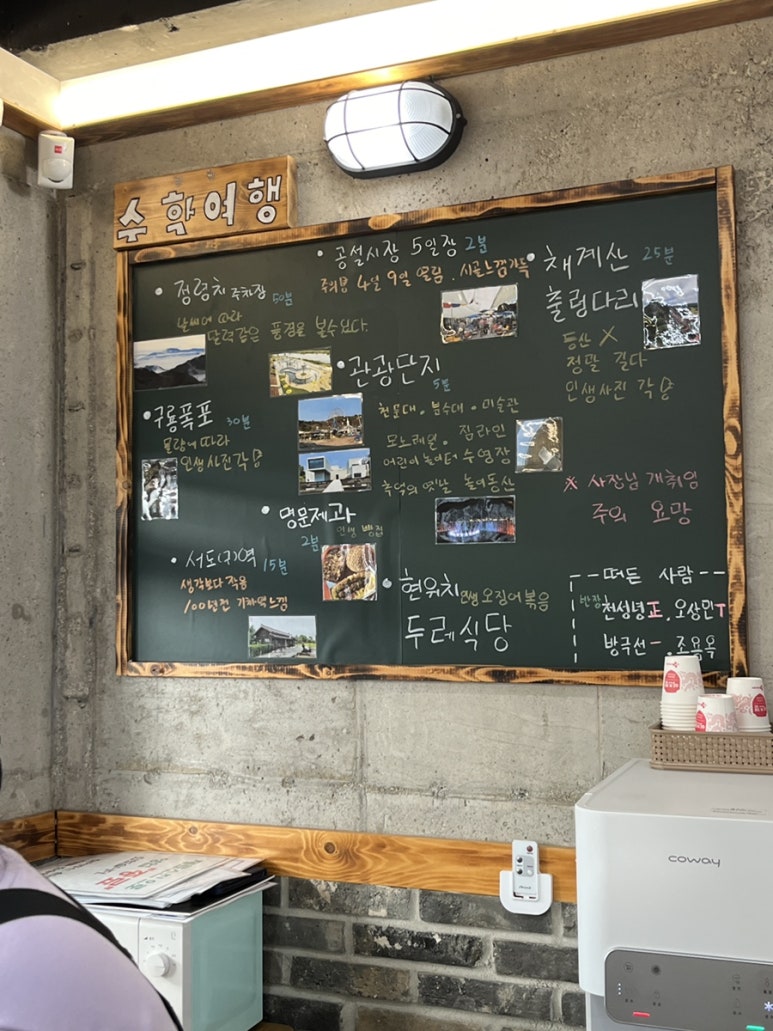 수학여행
• 공설시장 5일장 2분
4일 9일 열림. 시골느낌가득
• 정령치 주차장 50분
날씨에 따라
달력같은 풍경을 볼수있다.
• 채계산 25분
출렁다리
등산 X
정말 길다
인생사진 각
• 관광단지
5분
천문대. 분수대. 미술관
모노레일. 짚라인
어린이 놀이터 수영장
추억의 옛날 놀이동산
• 구룡폭포 30분
물량에 따라
인생사진각
• 명문제과
인생 빵집
2분
※ 사장님 개취임
주의 요망
• 서도(구)역 15분
생각보다 작음
100년전 기차역느낌
• 현위치 인생 오징어볶음
두레식당
떠든 사람
반장 천성녕 正, 오상민 T
방극선 一, 조용욱
coway